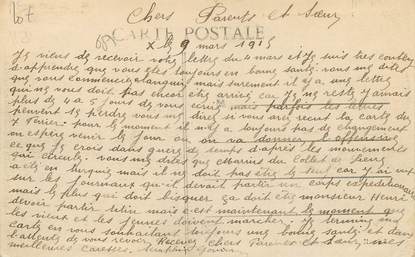 Chers Parents et Sœur
CARTE POSTALE
X le 9 mars 1915
Je viens de recevoir votre lettre du 4 mars et je suis très content
d'apprendre que vous êtes toujours en bonne santé. vous me dites
que vous commencez mais surement il y a une lettre
qui ne vous doit pas être arrivé car je ne reste jamais
plus de 4 a 5 jours de vous écrire mais parfois les lettres
peuvent se perdre vous me direz si vous avez recent la carte du
pour le moment il n'y a toujours pas de changement
on espère venir le jour ou on va donner l'offensive
ce que je crois dans quelque temps d'après les mouvements
que vous me dites que Marius du Collet de
a été en turquie mais il ne doit pas être le seul car j'ai vu
sur les journaux qu'il devait partir un corps expéditionnaire
mais le plus qui doit bisquer ça doit être monsieur Henri
devoir partir mais c'est maintenant le moment que
les vieux et les jeunes doivent marcher. Je termine ma
carte en vous souhaitant toujours une bonne santé et dans
l'attente de vous revoir. Recevez Chers Parents et Sœur mes
meilleures caresses.